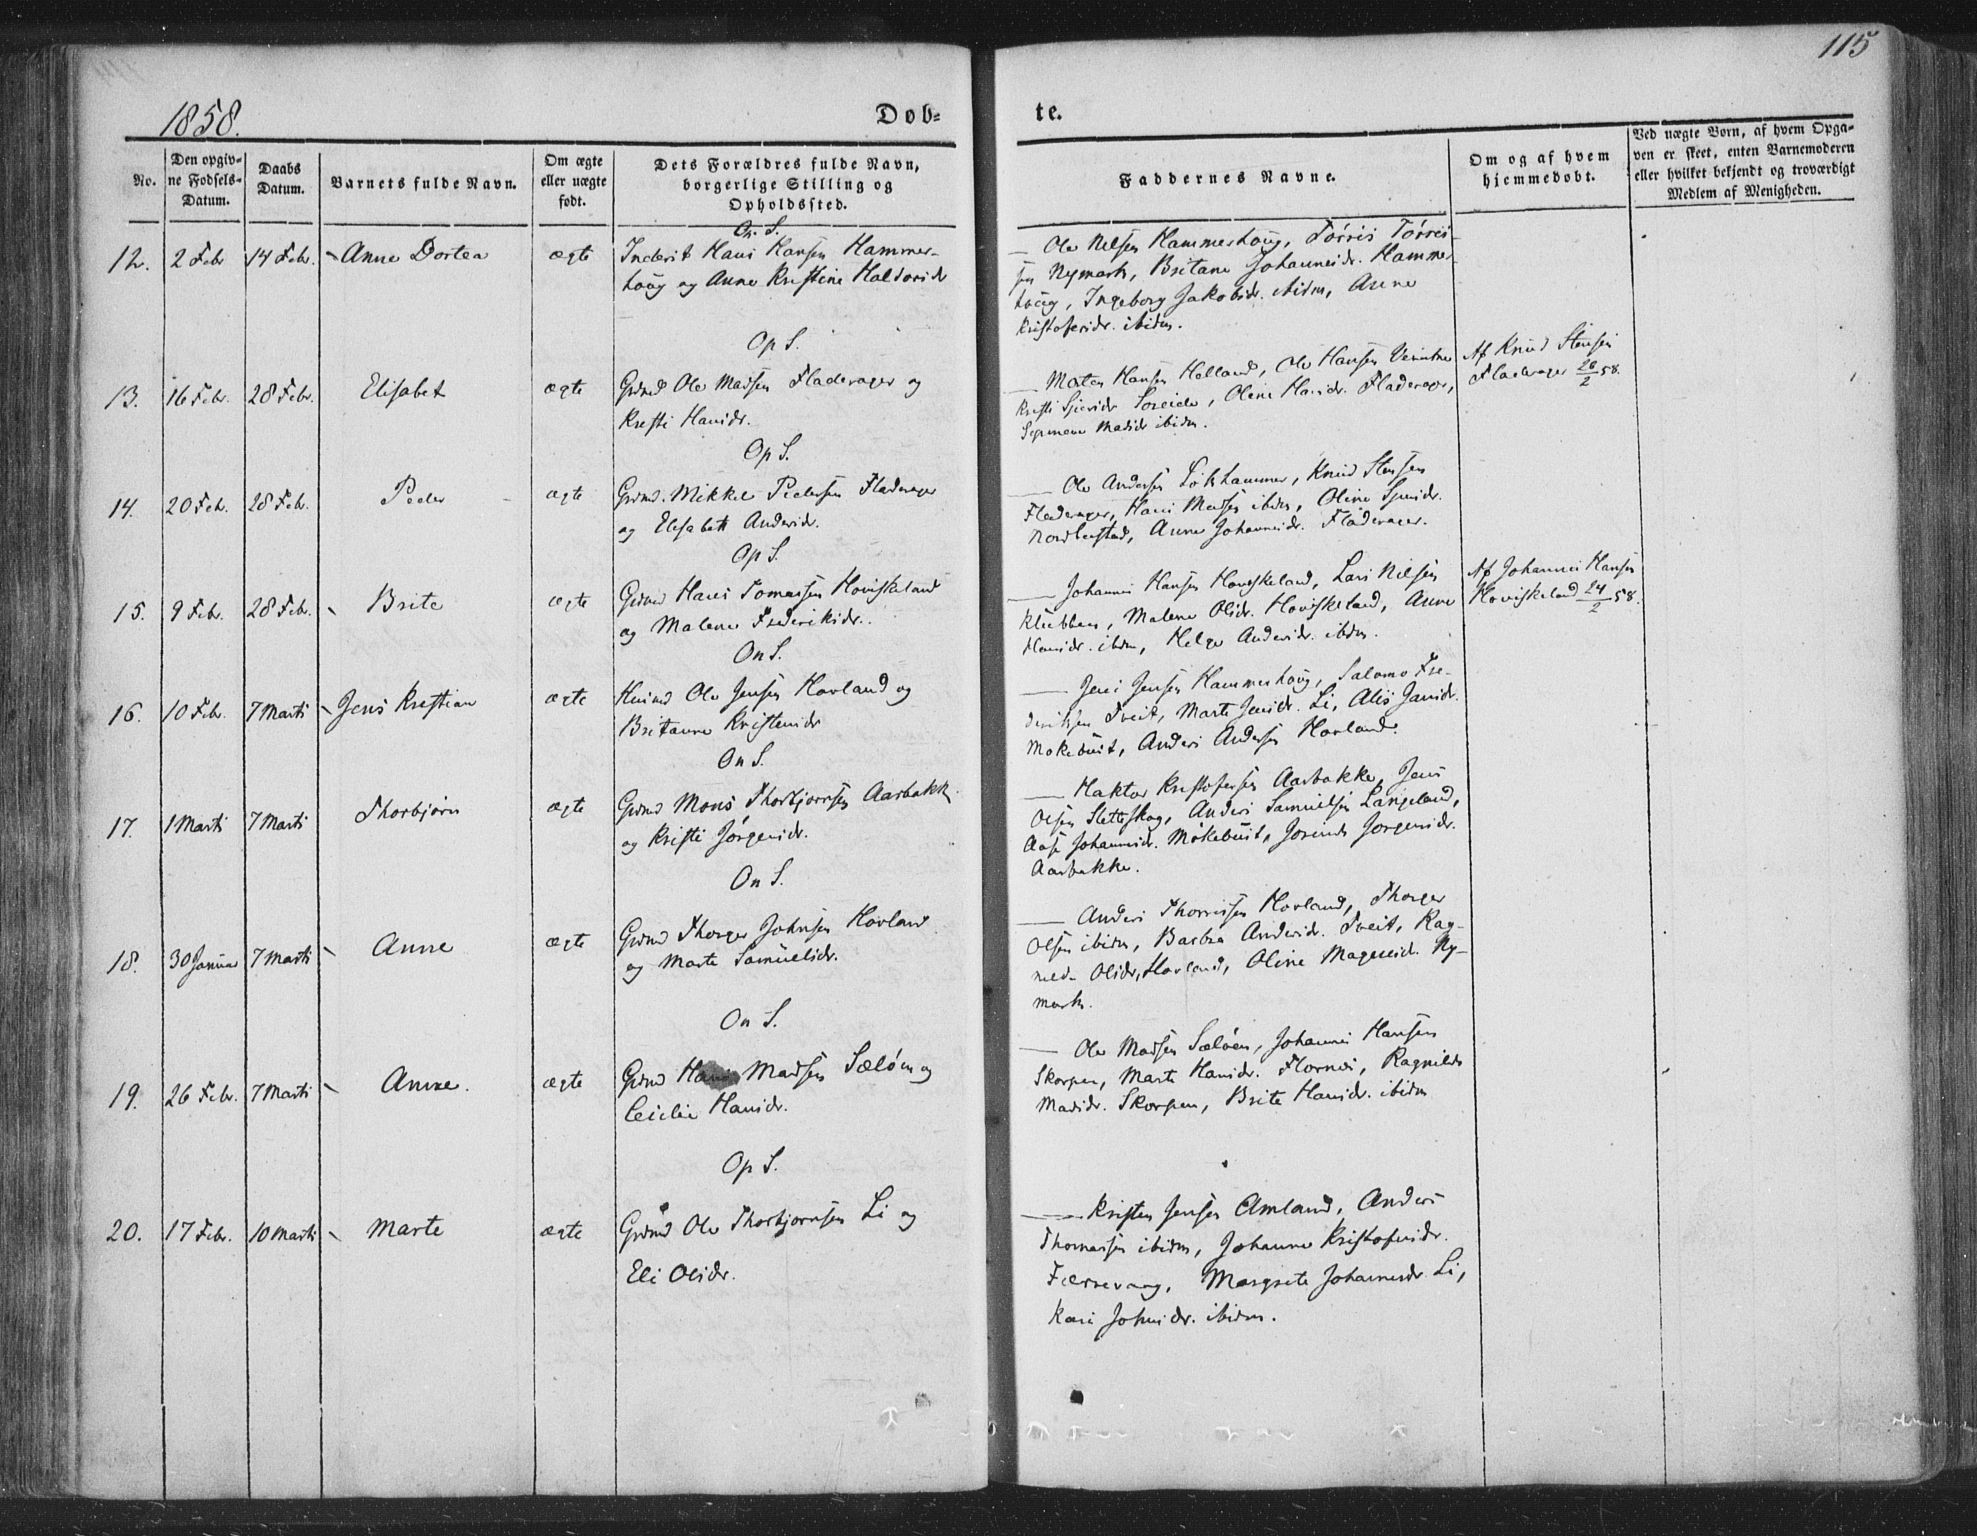 115
1858.
Døb-
te.
No.
Den opgiv-
ne Fødsels-
Datum.
Daabs
Datum.
Barnets fulde Navn.
Om ægte
eller uægte
født.
Dets Forældres fulde Navn,
borgerlige Stilling og
Opholdssted.
Faddernes Navne.
Om og af hvem
hjemmedøbt.
Ved uægte Børn, af hvem Opga-
ven er skeet, enten Barnemoderen
eller hvilket bekjendt og troværdigt
Medlem af Menigheden.
On S.
12. 2 Febr 14 Febr. Anne Dortea ægte Inderst Hans Hansen Hammer-
houg og Anne Kristine Haldorsdr
Ole Nilsen Hammerhoug, Torris Torris-
sen Nymark, Britane Johannesdr. Hammer-
houg, Ingeborg Jakobsdr. ibidm, Anne
Kristofersdr. ibidm.
Op S.
13. 16 Febr. 28 Febr. Elisabet ægte Grdmd Ole Madsen Fladerager og
Kristi Hansdr.
Morten Hansen Helland, Ole Hansen
Kristi Soreide, Oline Hansdr. Fladerager,
Madsdr ibidm.
Af Knud Stensen
Fladerager 26/2 58.
Op S.
14. 20 Feb. 28 Feb. Peder ægte Grdmd. Mikkel Pedersen Fladerager
og Elisabeth Andersdr.
Ole Andersen Lökhammer, Knud Stensen
Fladerager, Hans Madsen ibidm, Oline
Anne Johannesdr. Fladerager.
Op S.
15. 9 Feb. 28 Feb. Brite ægte Grdmd Hans Tomassen Hoviskeland
og Malene Frederiksdr.
Johannes Hansen Hoviskeland, Lars Nilsen
Klubben, Malene Olsdr. Hoviskeland, Anne
Hansdr. ibidm, Helge Andersdr. ibidm.
Af Johannes Hansen
Hoviskeland 24/2 58.
On S.
16. 10 Febr. 7 Marti Jens Kristian ægte Husmd Ole Jensen Hovland og
Britanne Kristensdr
Jens Jensen Hammerhoug, Salomo Fre-
deriksen Tveit, Marte Jensdr. Li, Alis Jansdr.
Mokebust, Anders Andersen Hovland.
On S.
17. 1 Marti 7 Marti Thorbjørn ægte Grdmd Mons Thorbjørnsen Aarbakk
og Kristi Jørgensdr.
Haktor Kristofersen Aarbakke, Jens
Olsen Sletteskog, Anders Samuelsen Langeland,
Aase Johannesdr. Mökebust, Jorgensdr.
Aarbakke.
On S.
18. 30 Januar 7 Marti Anne ægte Grdmd Thorger Johnsen Hovland
og Marte Samuelsdr.
Anders Thorrissen Hovland, Thorger
Olsen ibidm, Barbra Andersdr. Tveit, Rag-
Olsdr, Hovland, Oline Ny-
mark.
On S.
19. 26 Febr. 7 Marti Anne. ægte Grdmd Hans Madsen Sæløen og
Ceicilie Hansdr.
Ole Madsen Sæløen, Johannes Hansen
Skorpen, Marte Hansdr. Flornes, Ragnilde
Madsdr. Skorpen, Brite Hansdr. ibidm
Op S.
20. 17 Febr. 10 Marti Marte ægte Grdmd Ole Thorbjørnsen Li og
Eli Olsdr.
Kristen Jensen Amland, Anders
Thomassen ibidm, Johanne Kristofersdr.
Færrevaag, Margrete Johannesdr Li,
Kari Johnsdr. ibidm.